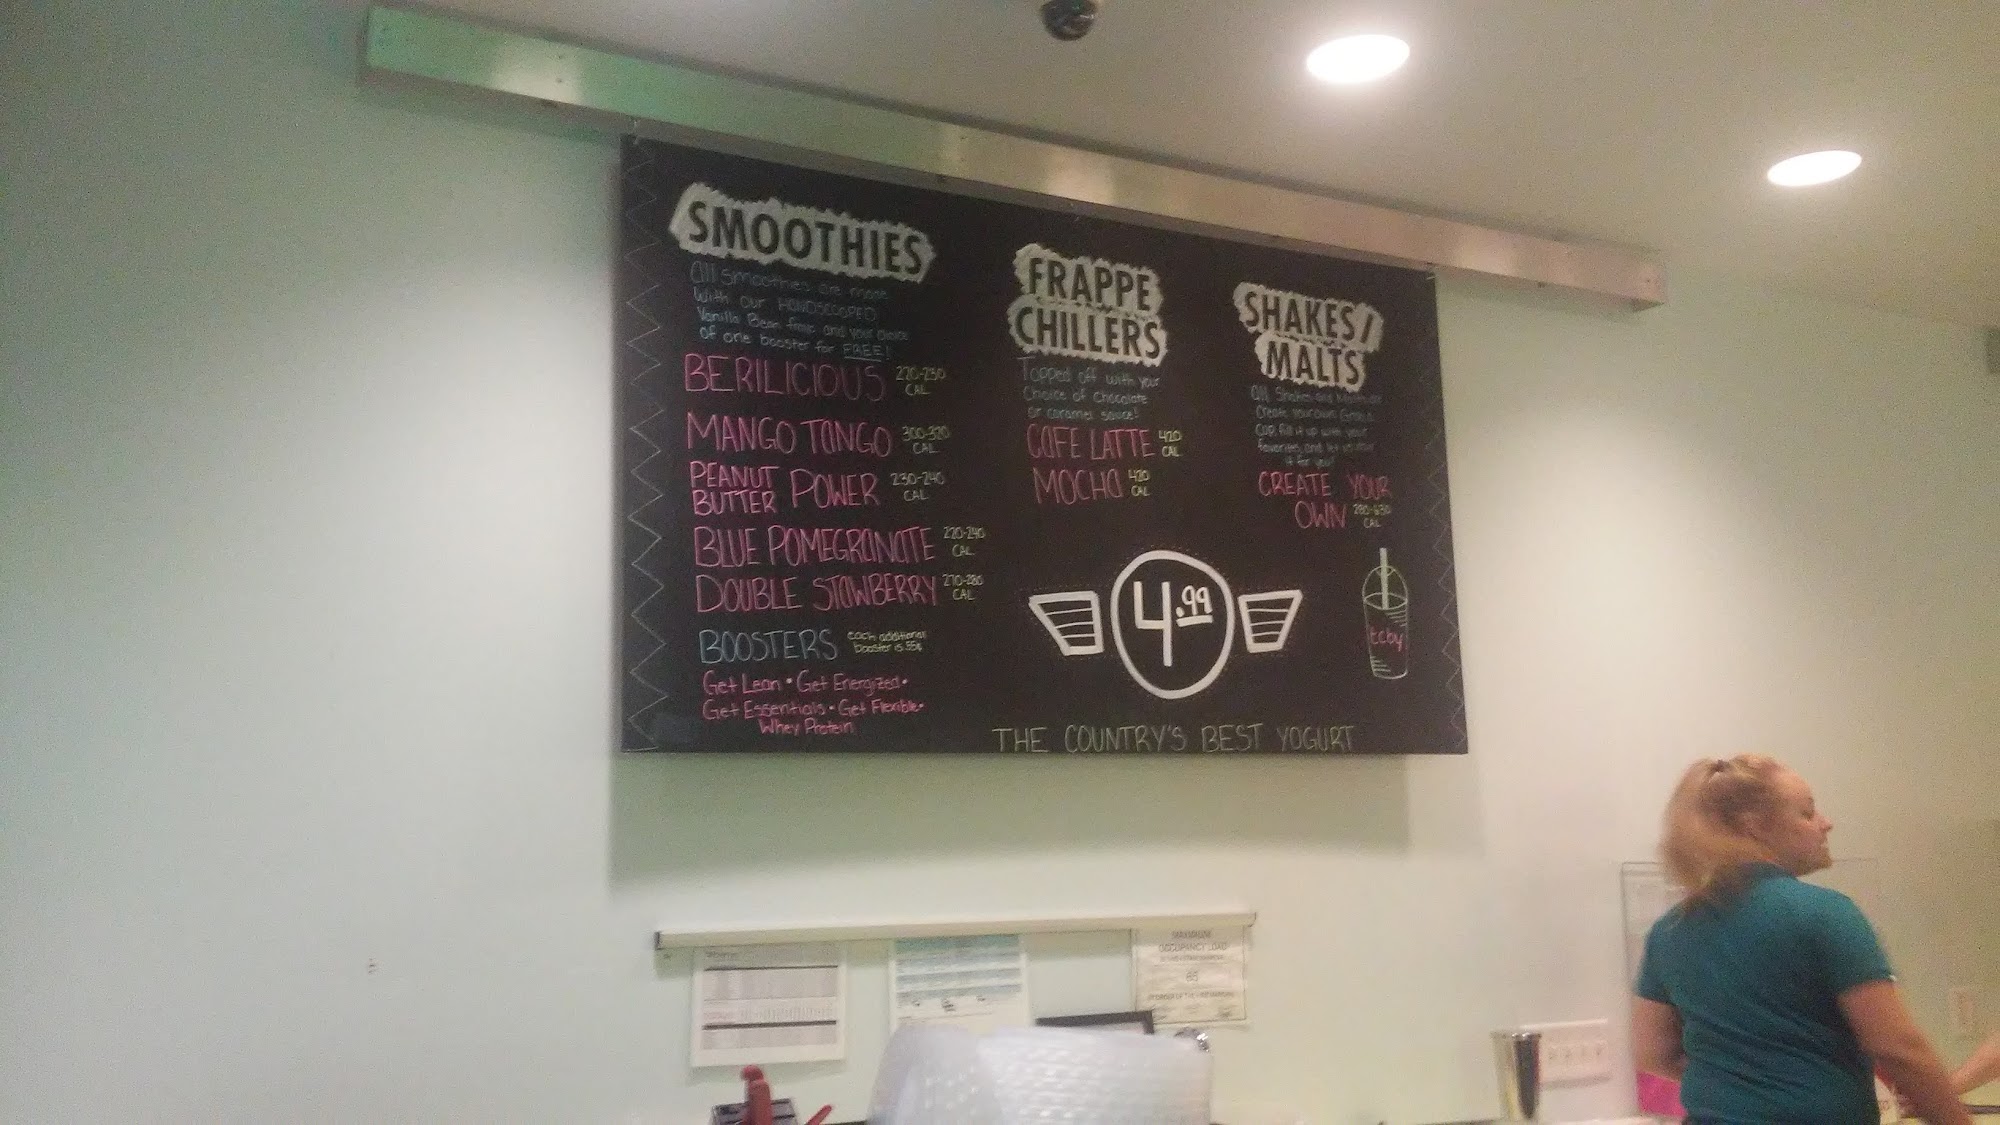 SMOOTHIES
All smoothies are made
With our HANDSCOOPED
Vanilla Bean froyo and your choice
of one booster for FREE!
BERILICIOUS 220-230 CAL
MANGO TANGO 300-320 CAL
PEANUT BUTTER POWER 230-240 CAL
BLUE POMEGRANATE 220-240 CAL
DOUBLE STOWBERRY 270-280 CAL
BOOSTERS each additional booster is 55¢
Get Lean • Get Energized •
Get Essentials • Get Flexible •
Whey Protein
FRAPPE
CHILLERS
Topped off with your
Choice of Chocolate
or caramel sauce!
CAFE LATTE 420 CAL
MOCHA 420 CAL
SHAKES/
MALTS
All Shakes and Malts are
Create your own Grab a
Cup, fill it up with your
favorites, and let us
it for you!
CREATE YOUR
OWN 280-630 CAL
4.99
tcby
THE COUNTRY'S BEST YOGURT
MAXIMUM
OCCUPANCY LOAD
65